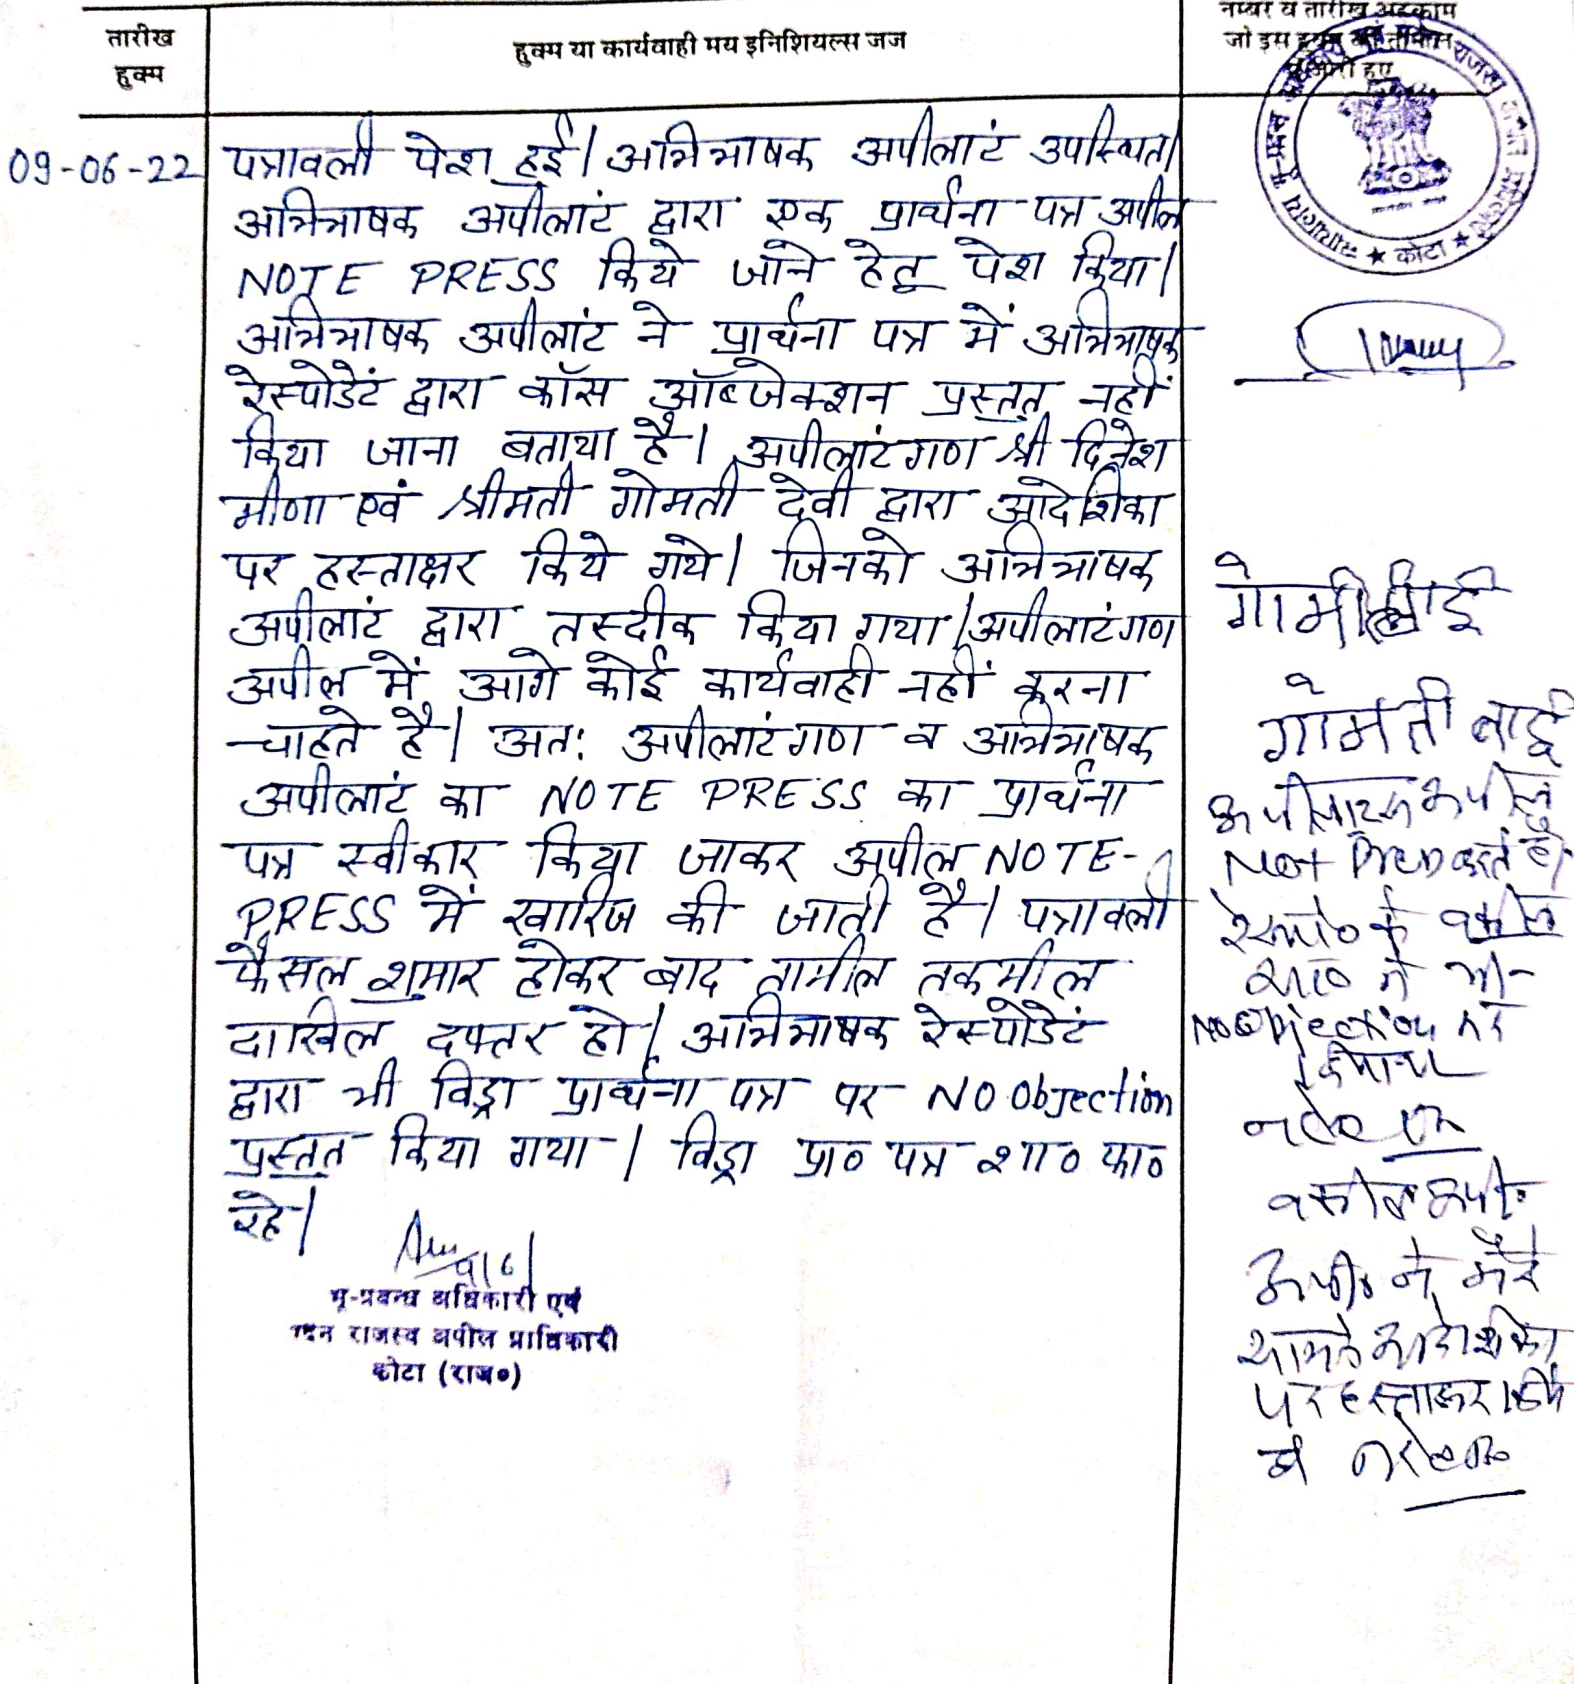 तारीख
हुक्म
हुक्म या कार्यवाही मय इनिशियल्स जज
नम्बर व तारीख अहकाम
जो इस हुक्म की तामील
में जारी हुए
09-06-22
पत्रावली पेश हुई। अभिभाषक अपीलांट उपस्थित।
अभिभाषक अपीलांट द्वारा एक प्रार्थना पत्र अपील
NOTE PRESS किये जाने हेतु पेश किया।
अभिभाषक अपीलांट ने प्रार्थना पत्र में अभिभाषक
रेस्पोडेंट द्वारा कॉस ऑब्जेक्शन प्रस्तुत नहीं
किया जाना बताया है। अपीलांटगण श्री दिनेश
मीणा एवं श्रीमती गोमती देवी द्वारा आदेशिका
पर हस्ताक्षर किये गये। जिनको अभिभाषक
अपीलांट द्वारा तस्दीक किया गया। अपीलांटगण
अपील में आगे कोई कार्यवाही नहीं करना
चाहते है। अतः अपीलांटगण व अभिभाषक
अपीलांट का NOTE PRESS का प्रार्थना
पत्र स्वीकार किया जाकर अपील NOTE-
PRESS में खारिज की जाती है। पत्रावली
फैसल शुमार होकर बाद तामील तकमील
दाखिल दफ्तर हो। अभिभाषक रेस्पोडेंट
द्वारा भी विड्रा प्रार्थना पत्र पर NO Objection
प्रस्तुत किया गया। विड्रा प्रा० पत्र शा० फा०
रहे।
9/6/
भू-प्रबन्ध अधिकारी एवं
पदेन राजस्व अपील प्राधिकारी
कोटा (राज०)
★ कोटा ★
गोमती बाई
अपीलांटस अपील
Not Press करते है।
रेस्पो० के वकील
सा० ने भी
No Objection कर
दिया
वकील अपी०
अपी० ने मेरे
सामने आदेशिका
पर हस्ताक्षर किये
है